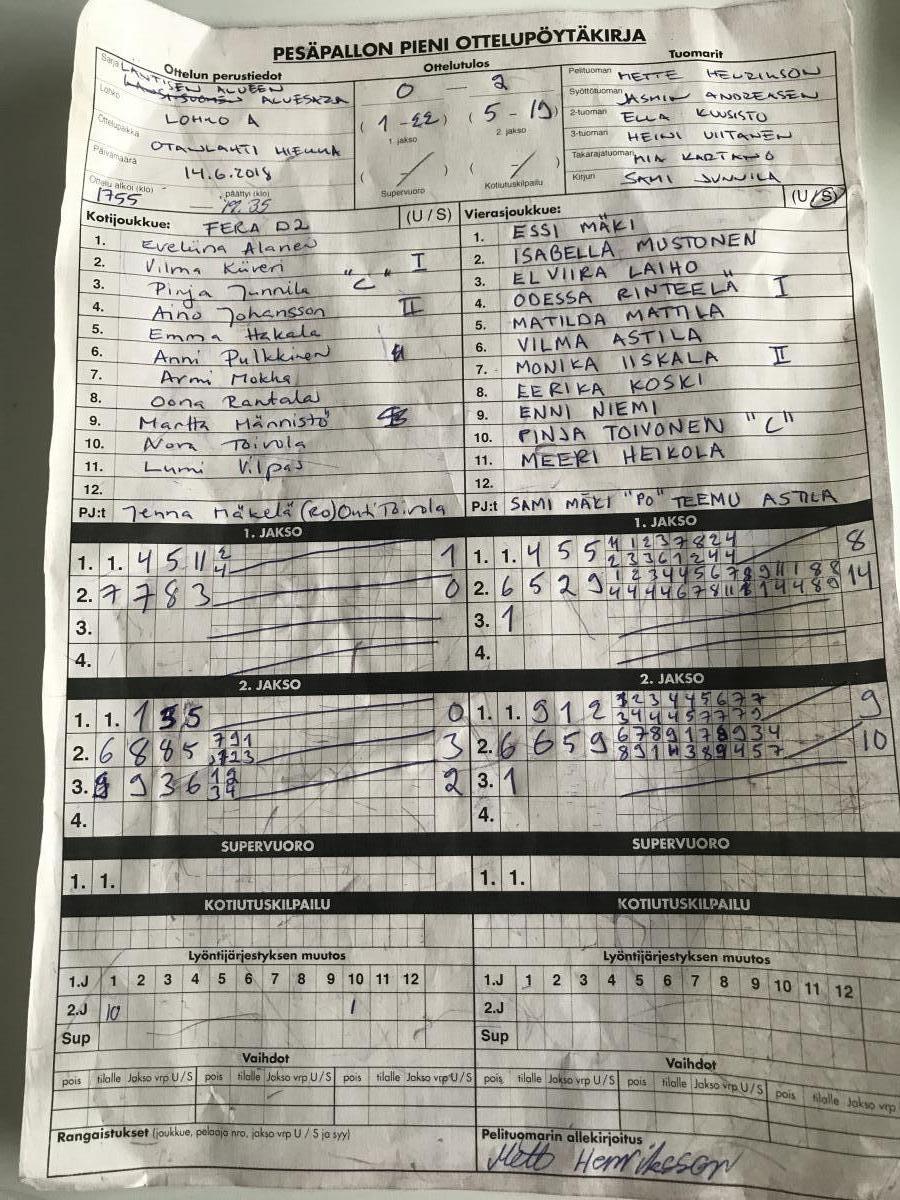 PESÄPALLON PIENI OTTELUPÖYTÄKIRJA
Ottelun perustiedot
Ottelutulos
Tuomarit
Sarja LÄNTISEN ALUEEN
ALUESARJA
Lohko LOHKO A
Ottelupaikka OTANLAHTI HIEKKA
Päivämäärä 14.6.2018
Ottelu alkoi (klo) 1755 - päättyi (klo) 19.35
0 - 2
(1 - 22) (5 - 19)
1. jakso 2. jakso
( / ) ( / )
Supervuoro Kotiutuskilpailu
Pelituomari METTE HENRIKSON
Syöttötuomari JASMIN ANDREASEN
2-tuomari ELLA KUUSISTO
3-tuomari HEINI VIITANEN
Takarajatuomari MIA KARTANO
Kirjuri SAMI JUNNILA
Kotijoukkue: FERA D2 (U / S)
1. Eveliina Alanen
2. Vilma Kiiveri I
3. Pinja Junnila "C"
4. Aino Johansson II
5. Emma Hakala
6. Anni Pulkkinen
7. Armi Mokha
8. Oona Rantala
9. Martta Männistö
10. Nora Toivola
11. Lumi Vilpas
12.
PJ:t Jenna Mäkelä (Ro) Outi Toivola
Vierasjoukkue: (U / S)
1. ESSI MÄKI
2. ISABELLA MUSTONEN
3. ELVIIRA LAIHO
4. ODESSA RINTEELÄ I
5. MATILDA MATTILA
6. VILMA ASTILA
7. MONIKA IISKALA II
8. EERIKA KOSKI
9. ENNI NIEMI
10. PINJA TOIVONEN "C"
11. MEERI HEIKOLA
12.
PJ:t SAMI MÄKI "PO" TEEMU ASTILA
1. JAKSO
1. 1. 4 5 11 2 4 1
2. 7 7 8 3 0
3.
4.
1. JAKSO
1. 1. 4 5 5 8
2. 6 5 2 9 14
3. 1
4.
2. JAKSO
1. 1. 1 5 0
2. 6 8 8 5 791 3
3. 9 3 6 12 34 2
4.
2. JAKSO
1. 1. 9 1 2 9
2. 6 6 5 9 10
3. 1
4.
SUPERVUORO
1. 1.
SUPERVUORO
1. 1.
KOTIUTUSKILPAILU
KOTIUTUSKILPAILU
Lyöntijärjestyksen muutos
1.J 1 2 3 4 5 6 7 8 9 10 11 12
2.J 10 1
Sup
Lyöntijärjestyksen muutos
1.J 1 2 3 4 5 6 7 8 9 10 11 12
2.J
Sup
Vaihdot
pois tilalle Jakso vrp U / S pois tilalle Jakso vrp U / S pois tilalle Jakso vrp U / S
Vaihdot
pois tilalle Jakso vrp U / S pois tilalle Jakso vrp U / S pois tilalle Jakso vrp
Rangaistukset (joukkue, pelaaja nro, jakso vrp U / S ja syy)
Pelituomarin allekirjoitus
Mette Henriksson